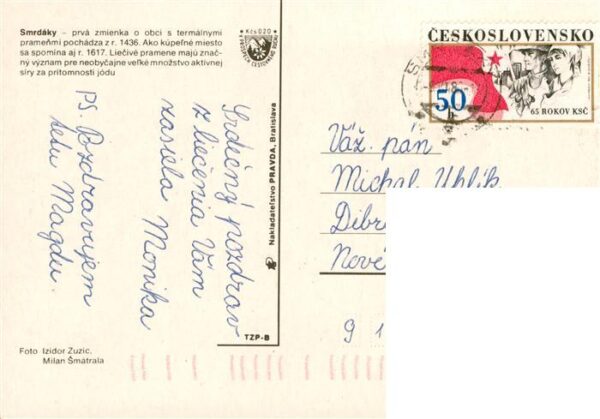 Smrdáky - prvá zmienka o obci s termálnymi
prameňmi pochádza z r. 1436. Ako kúpeľné miesto
sa spomína aj r. 1617. Liečivé pramene majú znač-
ný význam pre neobyčajne veľké množstvo aktívnej
síry za prítomnosti jódu
Kčs 0,20
ČESKOSLOVENSKO
50
65 ROKOV KSČ
Srdečný pozdrav
z liečenia Vám
zasiela Monika
PS. Pozdravujem
tetu Magdu.
Nakladateľstvo PRAVDA, Bratislava
TZP-B
Váž. pán
Michal Uhlík
Nové
9 1
Foto Izidor Zuzic,
Milan Šmatrala